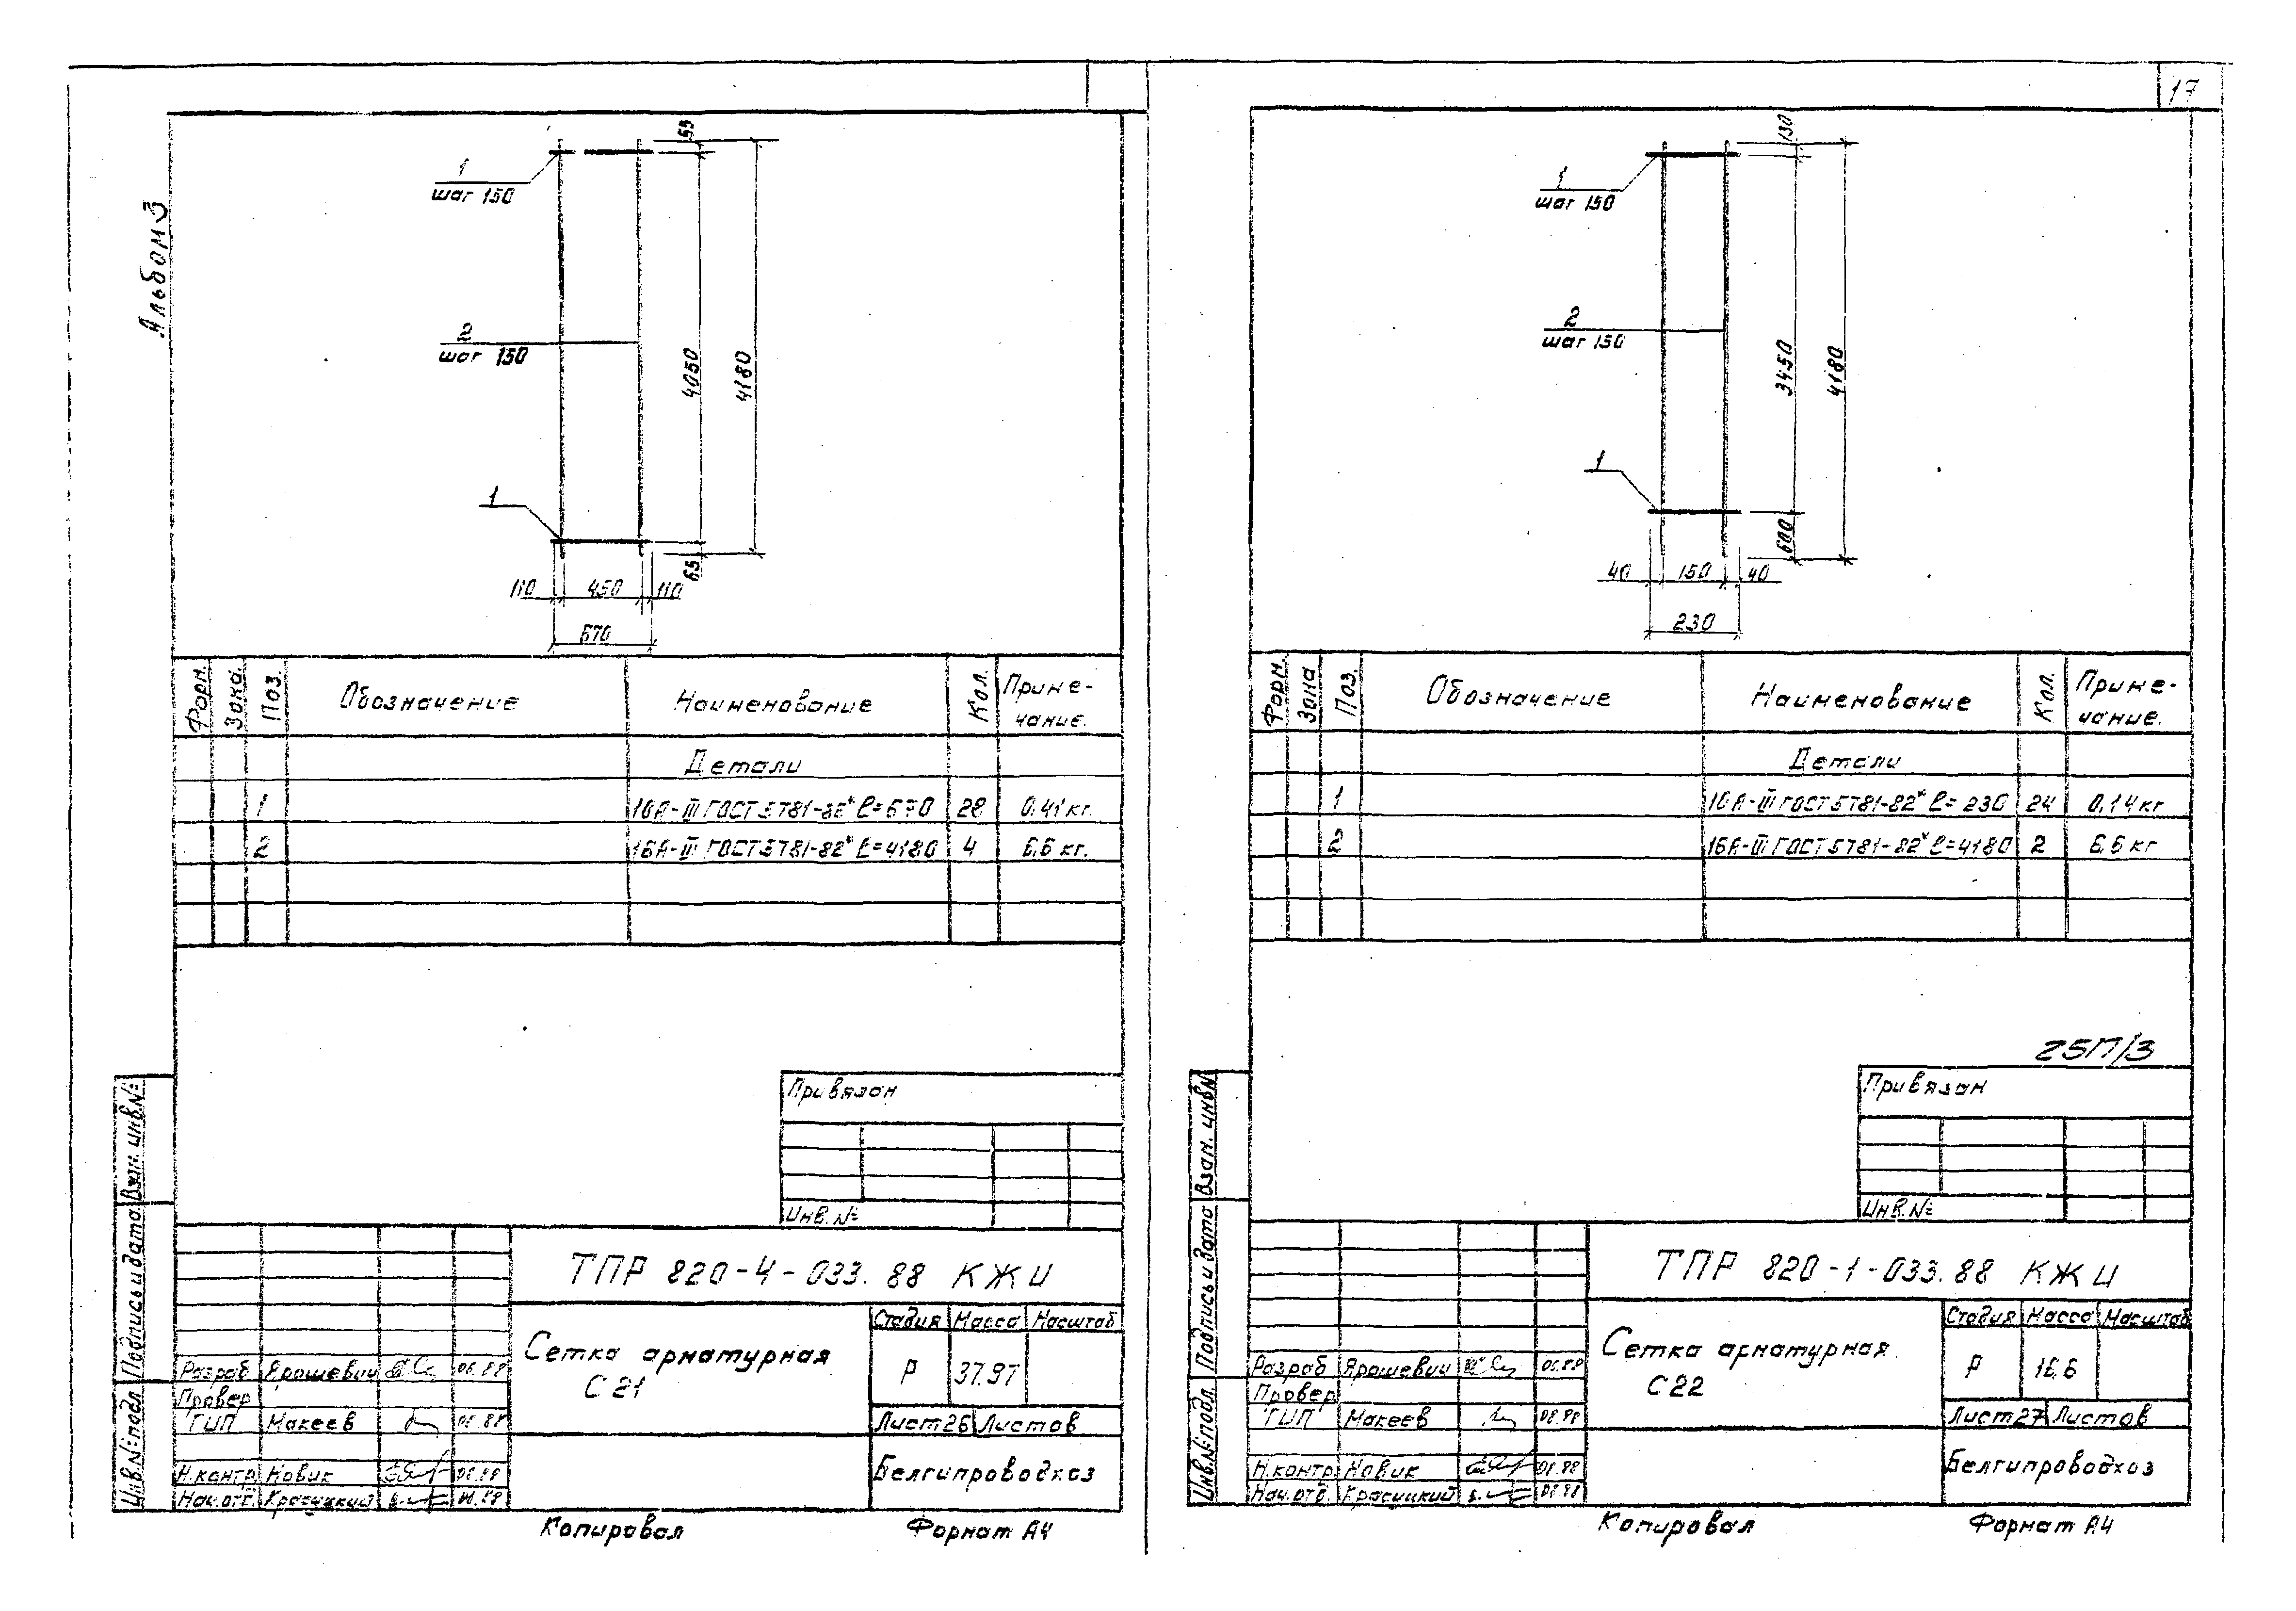 17
Альбом 3
1
шаг 150
2
шаг 150
1
55
4050
4180
65
110 450 110
670
Форм. Зона. Поз. Обозначение Наименование Кол. Приме-
чание.
Детали
1 10А-III ГОСТ 5781-82* ℓ=670 28 0,41 кг.
2 16А-III ГОСТ 5781-82* ℓ=4180 4 6,6 кг.
Привязан
Инв. №
ТПР 820-4-033.88 КЖИ
Сетка арматурная
С 21
Стадия Масса Масштаб
Р 37.97
Лист 26 Листов
Белгипроводхоз
Разраб Ярошевич 06.88
Провер
ГИП Макеев 06.88
Н.контр. Новик 06.88
Нач.отд. Красуцкий
Взам. инв.№
Подпись и дата
Инв.№ подл.
Копировал Формат А4
1
шаг 150
2
шаг 150
1
130
3450
4180
600
40 150 40
230
Форм. Зона Поз. Обозначение Наименование Кол. Приме-
чание.
Детали
1 10А-III ГОСТ 5781-82* ℓ=230 24 0,14 кг
2 16А-III ГОСТ 5781-82* ℓ=4180 2 6,6 кг
25П/3
Привязан
Инв. №
ТПР 820-1-033.88 КЖИ
Сетка арматурная
С 22
Стадия Масса Масштаб
Р 16,6
Лист 27 Листов
Белгипроводхоз
Разраб Ярошевич 06.88
Провер
ГИП Макеев 06.88
Н.контр. Новик 06.88
Нач.отд. Красуцкий 06.88
Взам. инв№
Подпись и дата
Инв.№ подл.
Копировал Формат А4